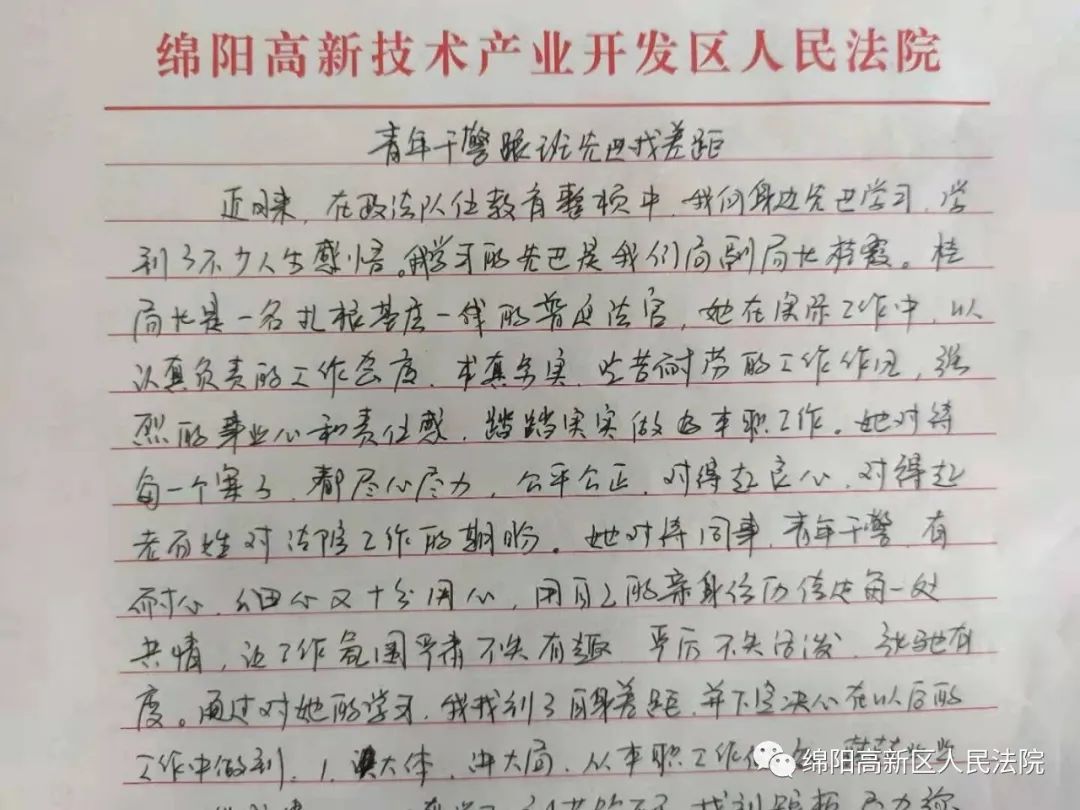 绵阳高新技术产业开发区人民法院
青年干警跟班先进找差距
近日来，在政法队伍教育整顿中，我向身边先进学习，学
到了不少人生感悟。我学习的先进是我们局副局长桂霞。桂
局长是一名扎根基层一线的普通法官，她在实际工作中，以
认真负责的工作态度，求真务实、吃苦耐劳的工作作风，强
烈的事业心和责任感，踏踏实实做好本职工作。她对待
每一个案子，都尽心尽力，公平公正，对得起良心，对得起
老百姓对法院工作的期盼。她对待同事、青年干警，有
耐心、细心又十分用心，用自己的亲身经历传达每一处
共情，让工作氛围严肃不失有趣，严厉不失活泼，张弛有
度。通过对她的学习，我找到了自身差距，并下定决心在以后的
工作中做到：1、识大体，讲大局，从本职工作做
绵阳高新区人民法院